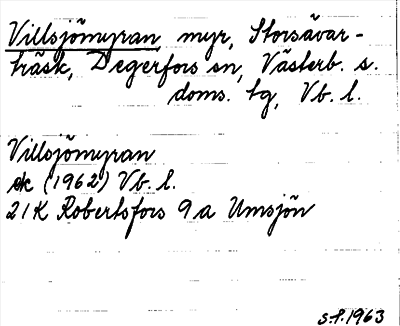 Villsjömyran myr, Storsävar-
träsk, Degerfors sn, Västerb. s.
doms. tg, Vb. l.
Villsjömyran
ek (1962) Vb. l.
21K Robertsfors 9a Umsjön
s.f. 1963